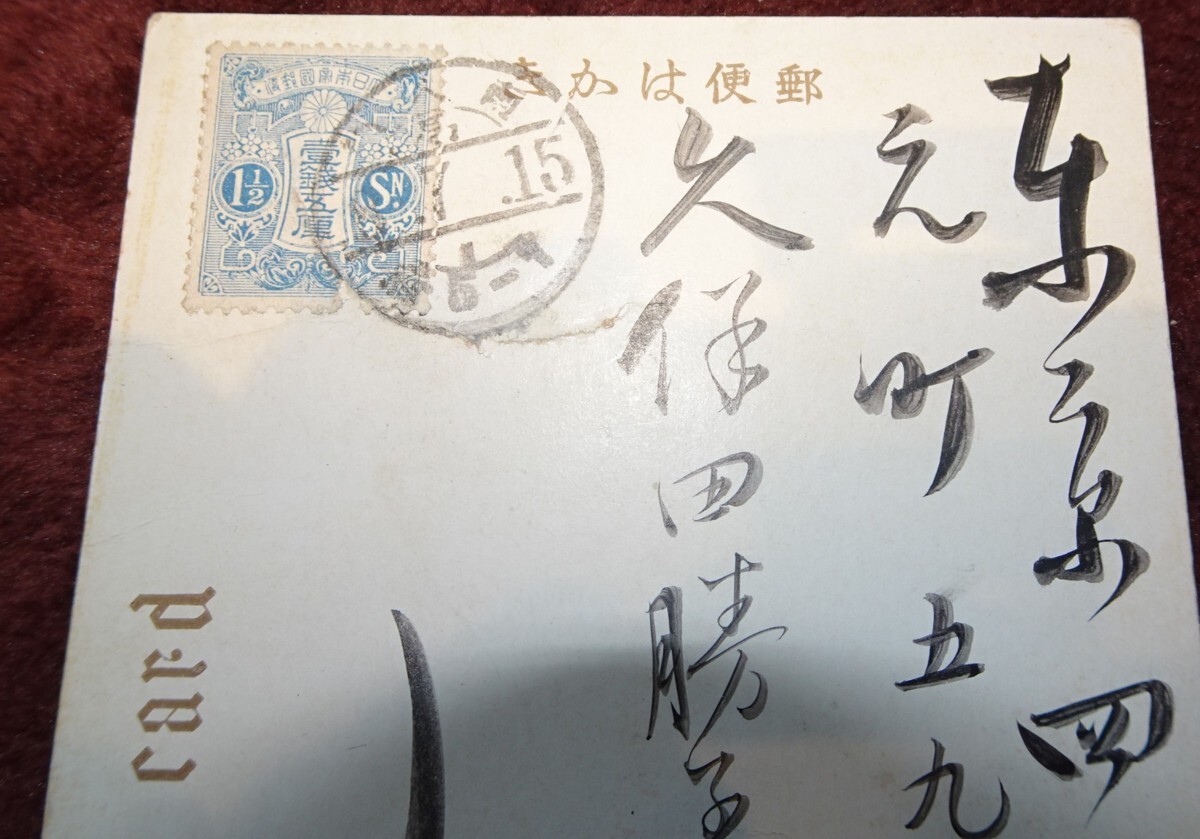 郵便はかき
東京四
元町五九
久保田勝子
大日本帝國郵便
壹錢五厘
1½
SN.
.15
Card